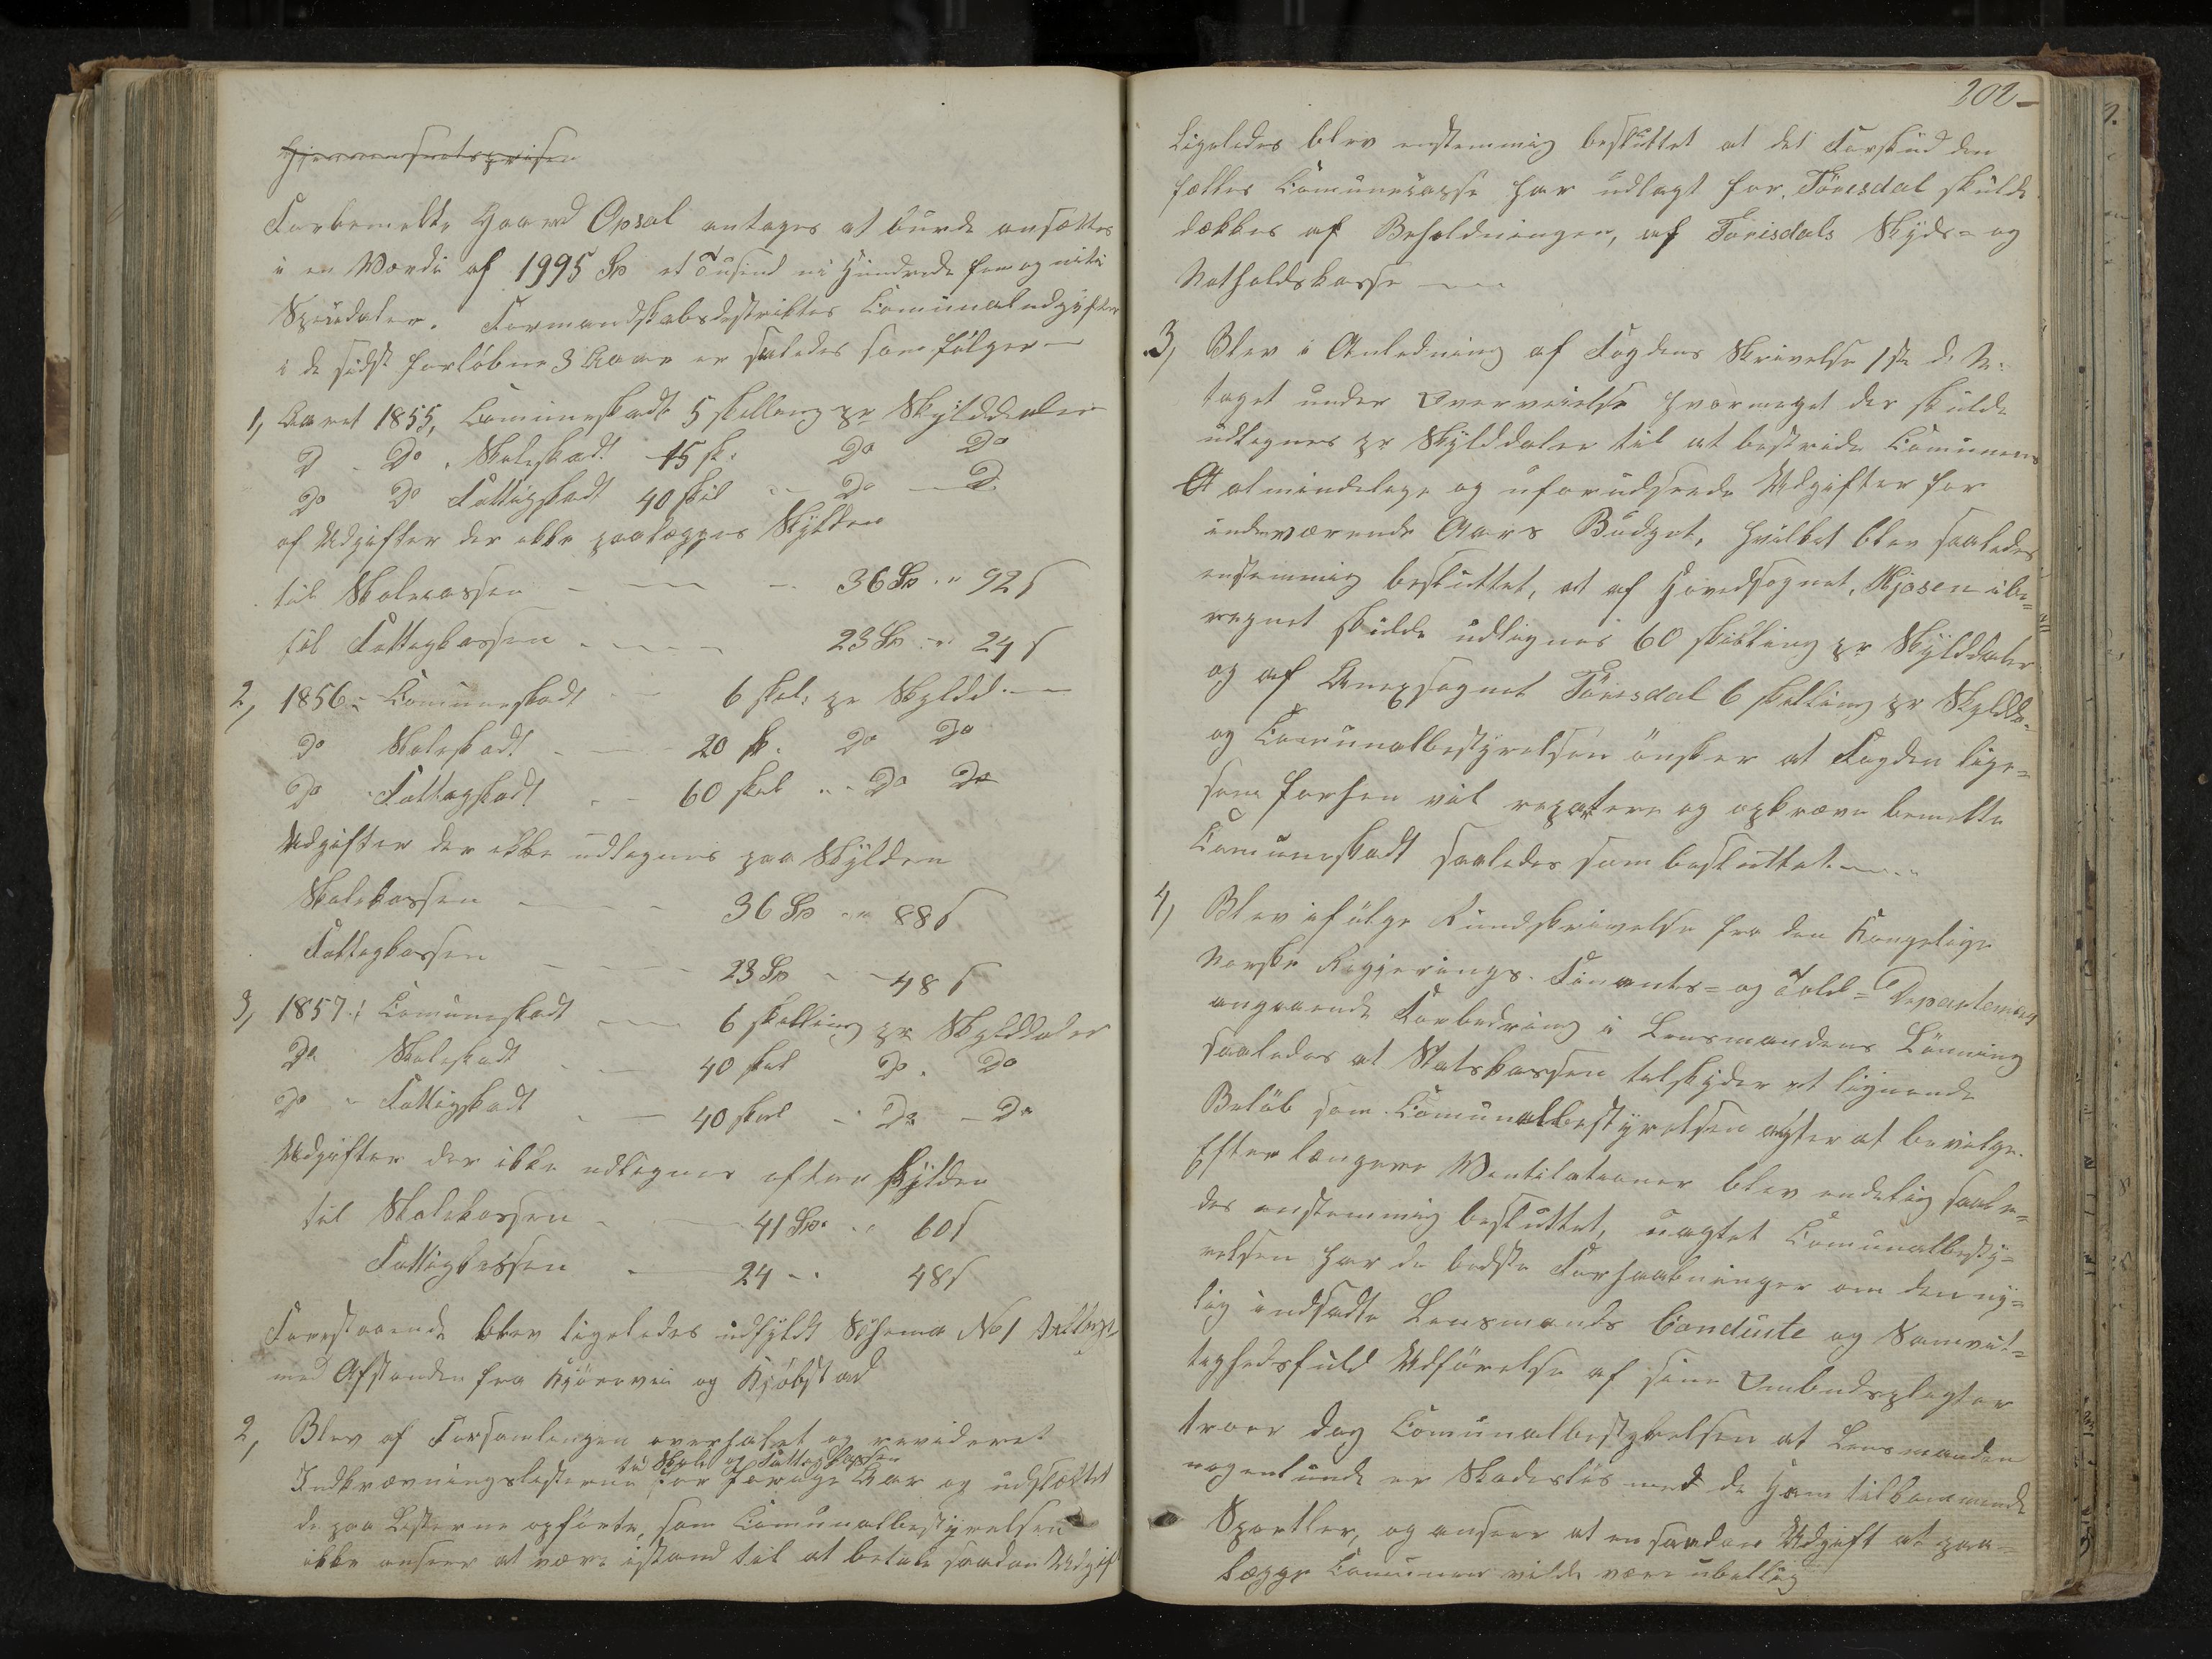 Gjennemsnitsprisen
Forbemelte Gaard Opsal antages at burde ansættes
i en Værdi af 1995 Sp et Tusind ni Hundrede fem og niti
Speciedaler. Formandskabsdistriktes Communaludgifter
i de sidst forløbne 3 Aar er saaledes som følger —
1, Aaret 1855, Communeskadt 5 skilling pr Skylddaler
D - Do. Skoleskadt 15 sk: Do Do
Do Do Fattigskadt 40 skil - Do - D
af Udgifter der ikke paalægges Skylden
til Skolecassen - 36 Sp " 92 s
til Fattigkassen - 23 Sp " 24 s
2, 1856: Communeskadt - 6 skil: pr Skyldd. —
Do Skoleskadt - 20 sk. Do Do
Do Fattigskadt - 60 skil " Do Do
Udgifter der ikke udlignes paa Skylden
Skolekassen - 36 Sp " 88 s
Fattigkassen
- 23 Sp - 48 s
3, 1857: Communeskadt - 6 skilling pr Skylddaler
Do Skoleskadt - 40 skil Do. Do
Do - Fattigskadt - 40 skil - Do - Do
Udgifter der ikke udlignes efter skylden
til Skolekassen - 41 Sp. " 60 s
Fattigkassen - 24 - 48 s
Forestaaende blev ligeledes udfyldt Schema No 1
med Afstanden fra Kjørevei og Kjøbstad
2, Blev af Forsamlingen overhalet og revideret
til Skole og Fattigkassen
Indkrævningslisterne for forrige Aar og udslettet
de paa Listerne opførte, som Communalbestyrelsen
ikke anseer at være istand til at betale saadan Udgift
202 -
Ligeledes blev enstemmig besluttet at det Forskud den
fælles Communecasse har udlagt for Törrisdal skulde
dækkes af Beholdningen, af Törrisdals Skyds- og
Natholdskasse —
3, Blev i Anledning af Fogdens Skrivelse 1ste d: M:
taget under Overveielse hvormeget der skulde
udlignes pr Skylddaler til at bestride Communens
Almindelige og uforudseede Udgifter for
indeværende Aars Budget, hvilket blev saaledes
enstemmig besluttet, at af Hovedsognet, Kjosen ibe=
regnet skulde udlignes 60 skilling pr Skylddaler
og af Anexsognet Törrisdal 6 skilling pr Skyldd.
og Communalbestyrelsen ønsker at Fogden lige=
som forhen vil repatere og opkræve bemelte
Communeskadt saaledes som besluttet. —
4, Blev ifølge Rundskrivelse fra den Kongelige
Norske Regjerings Finants= og Told= Departement
angaaende Forbedring i Lensmandens Lønning
saaledes at Statskassen tilskyder et lignende
Beløb som Communalbestyrelsen agter at bevilge.
Efter længere Ventilationer blev endelig saale=
des enstemmig besluttet, uagtet Communalbesty=
relsen har de bedste Forhaabninger om den ny=
lig indsadte Lensmands Conduite og Samvit=
tighedsfuld Udførelse af sine Ombudspligter
troer dog Communalbestyrelsen at Lensmanden
nogenlunde er Skadesløs med de Ham tilkommende
Sportler, og anseer at en saadan Udgift at paa=
lægge Communen vilde være ubillig